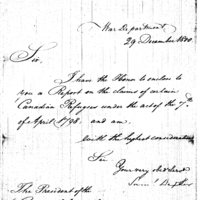 War Department
29 December 1800
Sir,
I have the Honor to enclose to
you a Report on the claims of certain
Canadian Refugees under the act of the 7th
of April 1798. and am
with the highest consideration
Sir
Your very obed serv
Sam Dexter
The President of the